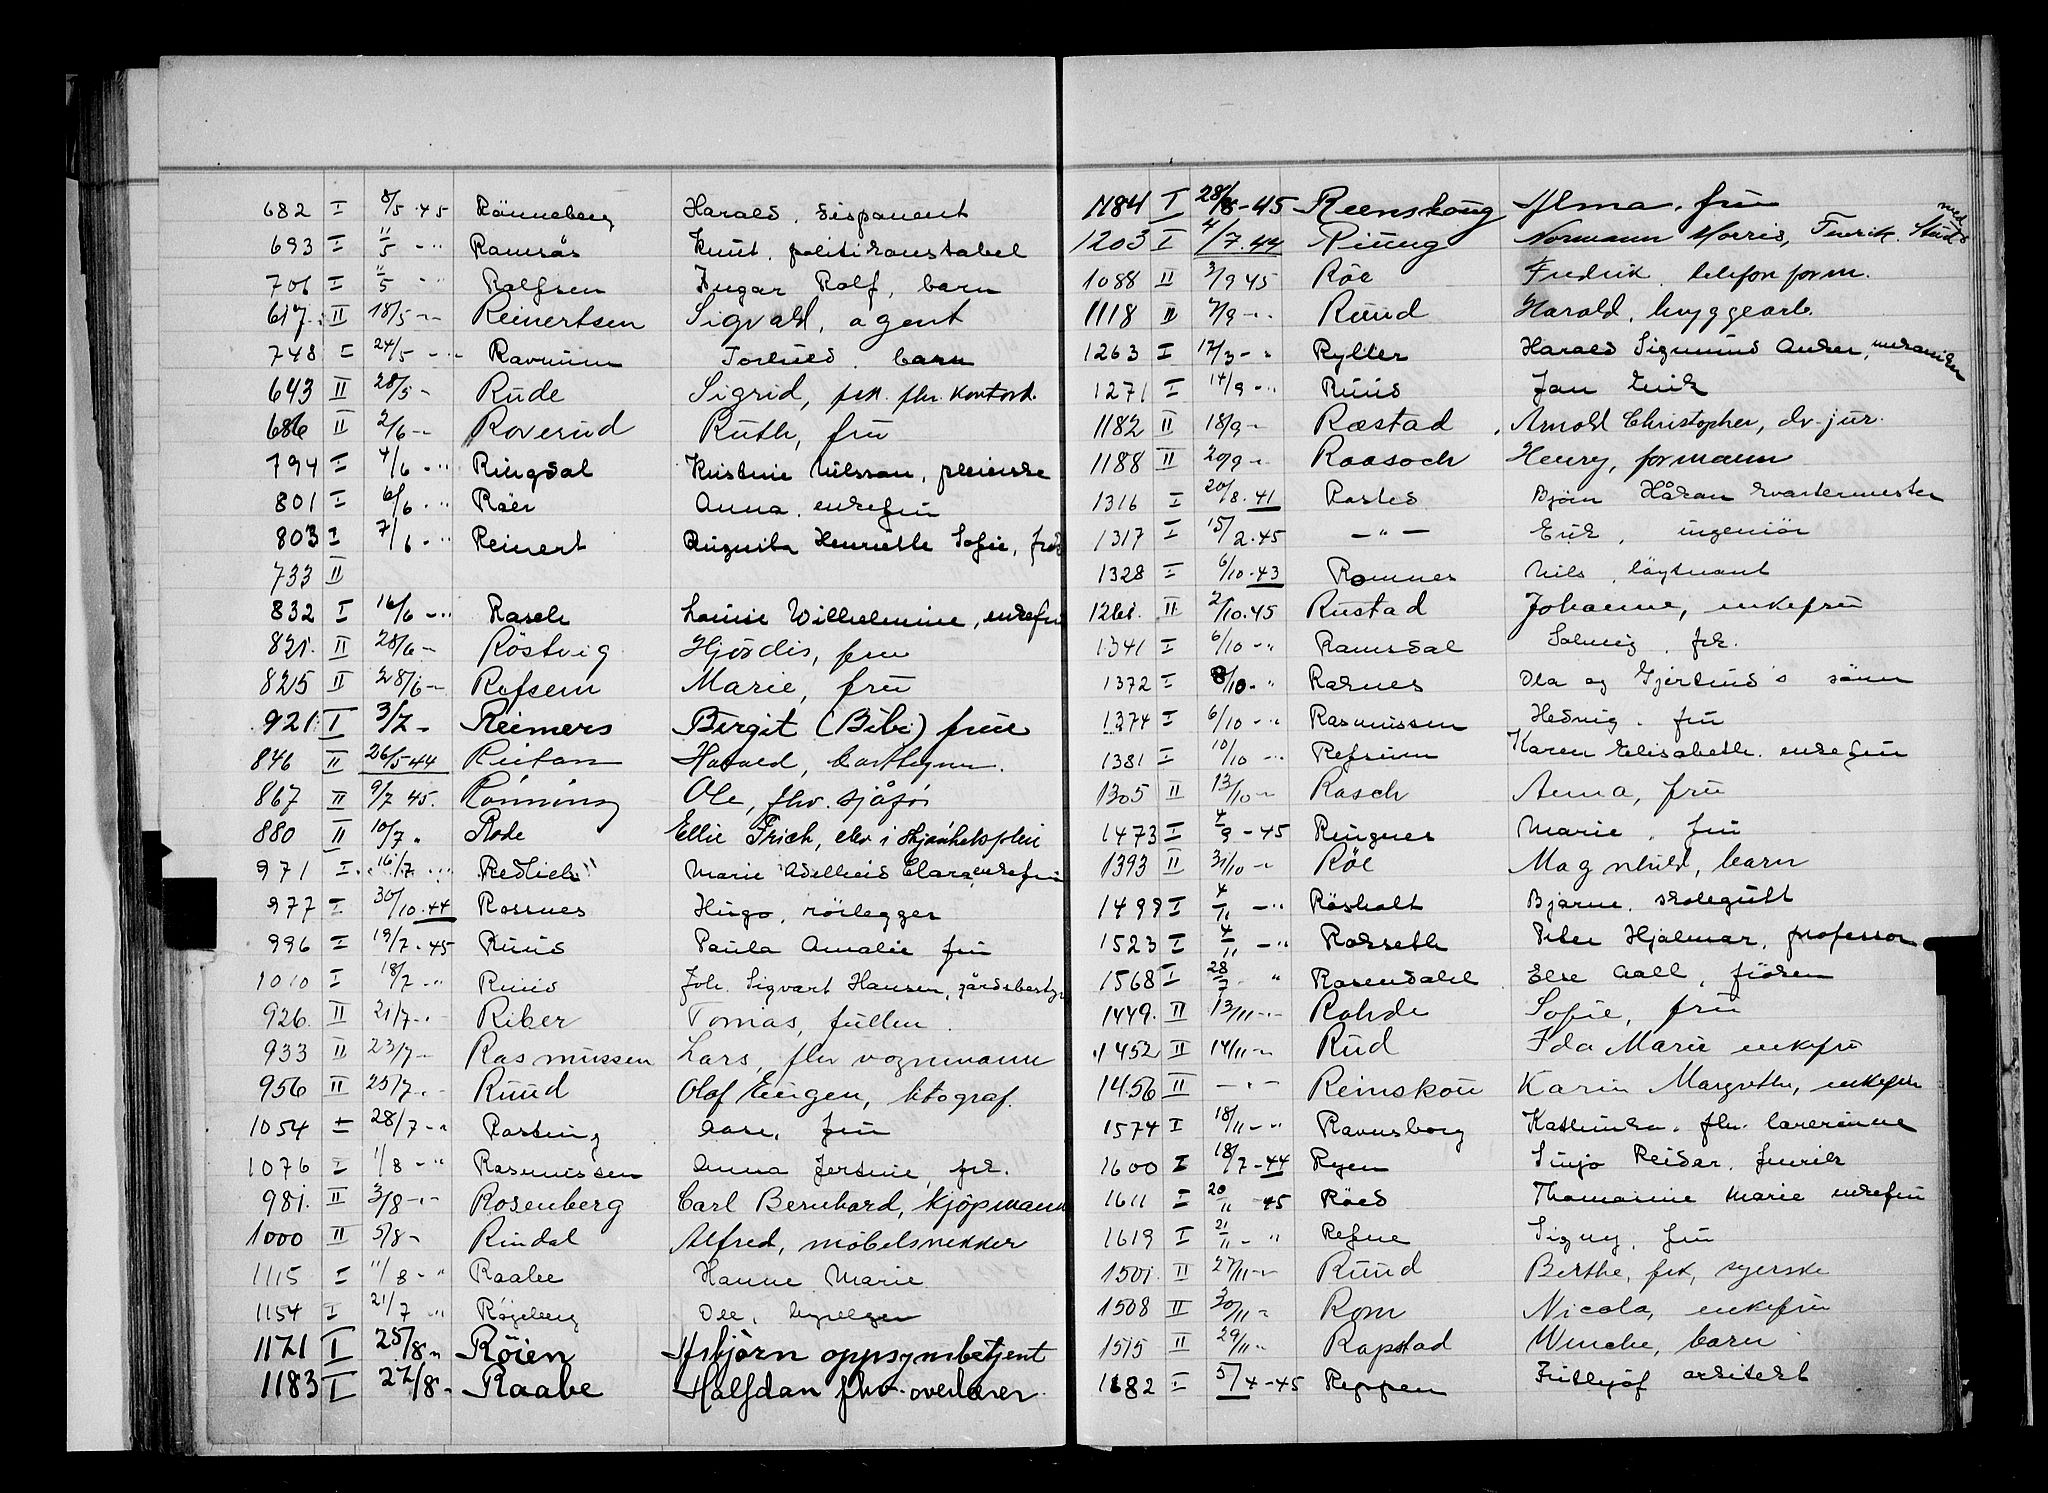 682 I 8/5 45 Rönneberg Harald, disponent
693 I 11/5 -"- Ramsås Knut, politikonstabel
706 I 11/5 -"- Rolfsen Ingar Rolf, barn
617. II 18/5 -"- Reinertsen Sigvald, agent
748 I 24/5 -"- Ravnum Torhild, barn
643 II 28/5 - Rude Sigrid, frk. fhv. kontord.
686 II 2/6 -"- Roverud Ruth, fru
794 I 4/6 -"- Ringdal Kristine Nilssen, pleierske
801 I 6/6 -"- Röer Anna, enkefru
803 I 7/6 -"- Reinert Augusta Henriette Sofie,
733 II
832 I 16/6 -"- Rasch Louise Wilhelmine, enkefru
821. II 28/6 - Röstvig Hjördis, fru
825 II 28/6 - Refsem Marie, fru
921. I 3/7 - Reimers Birgit (Bibi) frue
846 II 26/5 44 Harald,
867 II 9/7 45. Rönning Ole, fhv. sjåför
880 II 10/7 " Rode Ellie Frich, elev i skjönhetspleie
971 I 16/7 -"- Redlich" Marie Adelheid Clara enkefru
977 I 30/10.44 Rossnes Hugo, rörlegger
996 I 19/7.45 Ruud Paula Amalie fru
1010 I 18/7 -"- Ruud Joh. Sigvart Hansen, gårdsbesty
926. II 21/7 -"- Riber Tomas, fullm.
933 II 23/7 - Rasmussen Lars, fhv vognmann
956 II 25/7 -"- Ruud Olaf Eugen, litograf.
1054 I 28/7 -"- Rosting Aase, fru
1076 I 1/8 -"- Rasmussen Anna Jertine, frk.
981. II 3/8 -"- Rosenberg Carl Bernhard, kjöpmann
1000 II 5/8 - Rindal Alfred, möbelsnekker
1115 I 11/8 -"- Raabe Hanne Marie
1154 I 21/7 -"- Rögeberg Ole,
1171 I 25/8 -"- Röien Asbjörn oppsynsbetjent
1183 I 27/8 - Raabe Halfdan fhv. overlærer
1184 I 28/8-45 Reenskoug Alma, fru
1203 I 4/7.44 Riung Normann Morris, Fenrik. Stud med
1088 II 3/9 45 Röe Fredrik telefonform.
1118 II 7/9 -"- Ruud Harald, bryggearb.
1263 I 17/3 -"- Rytter Harald Sigmund Anker, mekaniker
1271 I 14/9 -"- Ruud Jan Erik
1182 II 18/9 - Ræstad, Arnold Christopher, dr. jur.
1188 II 20/9 - Raasoch Henry, formann
1316 I 20/8.41 Rosted Björn Håkon kvartermester
1317 I 15/2.45 -"- Erik, ingeniör
1328 I 6/10.43 Romnes Nils, löytnant
1261. II 2/10.45 Rustad Johanne, enkefru
1341 I 6/10 -"- Ramsdal Solveig, frk.
1372 I 8/10 -"- Raknes Ola og Gjertrud's sönn
1374 I 6/10 -"- Rasmussen Hedvig, fru
1381 I 10/10 -"- Refsum Karen Elisabeth. enkefru
1305 II 13/10 -"- Rasch Anna, fru
1473 I 4/9 -45 Ringnes Marie, fru
1393 II 31/10 - Röe Magnhild, barn
1499 I 4/11 -"- Rösholt Bjarne, skolegutt
1523 I 4/11 -"- Rokseth Peter Hjalmar, professor
1568 I 28/7 " Rosendahl Else Aall, fröken
1449. II 13/11 -"- Rohde Sofie, fru
1452 II 14/11 -"- Rud Ida Marie enkefru
1456 II -"- Reinskou Karin Margrethe, enkefru
1574 I 18/11 -"- Ravnsborg Kathinka, fhv. lærerinne
1600 I 18/7 -44 Ryen Sinjo Reidar, fenrik
1611 I 20/11 -45 Röed Thomanine Marie enkefru
1619 I 21/11 -"- Refne Signy, fru
1501. II 27/11 -"- Ruud Berthe, frk, syerske
1508 II 30/11 - Rom Nicola, enkefru
1515 II 29/11 - Rapstad Wenche, barn
1682 I 5/4 -45 Reppen Frithjof arkitekt